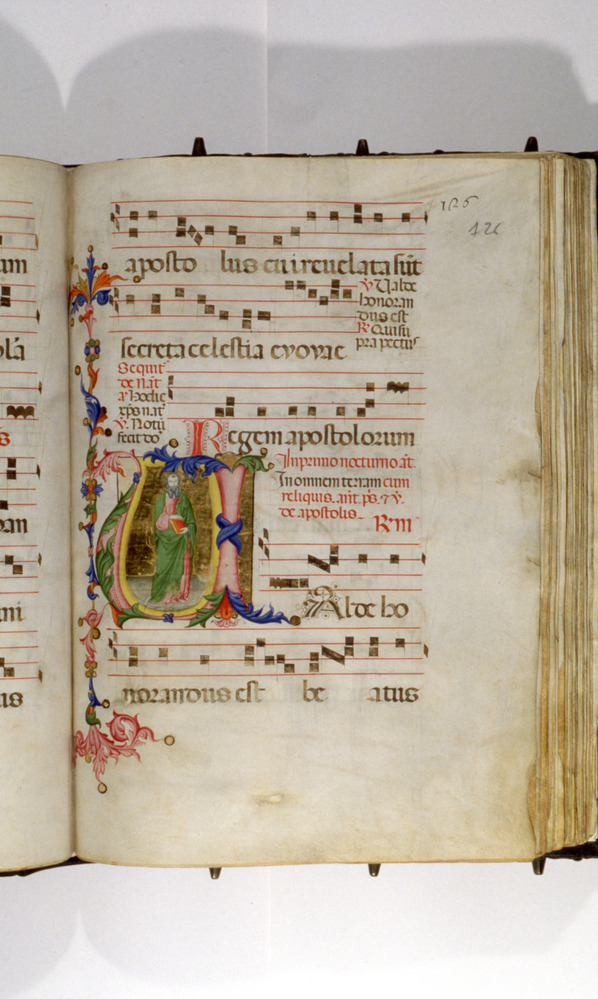 126
126
aposto lus cui reuelata sūt
℣ Ualde
honoran
dus est
℟ Qui su
pra pectus
secreta celestia euouae
Sequit
de nat̄
aͣ Hodie
xp̄s nat
℣. Notū
fecit do
Regem apostolorum
In primo nocturno añ.
In omnem terram cum
reliquis. añ. ps. ⁊ ℣.
de apostolis. ℟m
UAlde ho
norandus est be atus